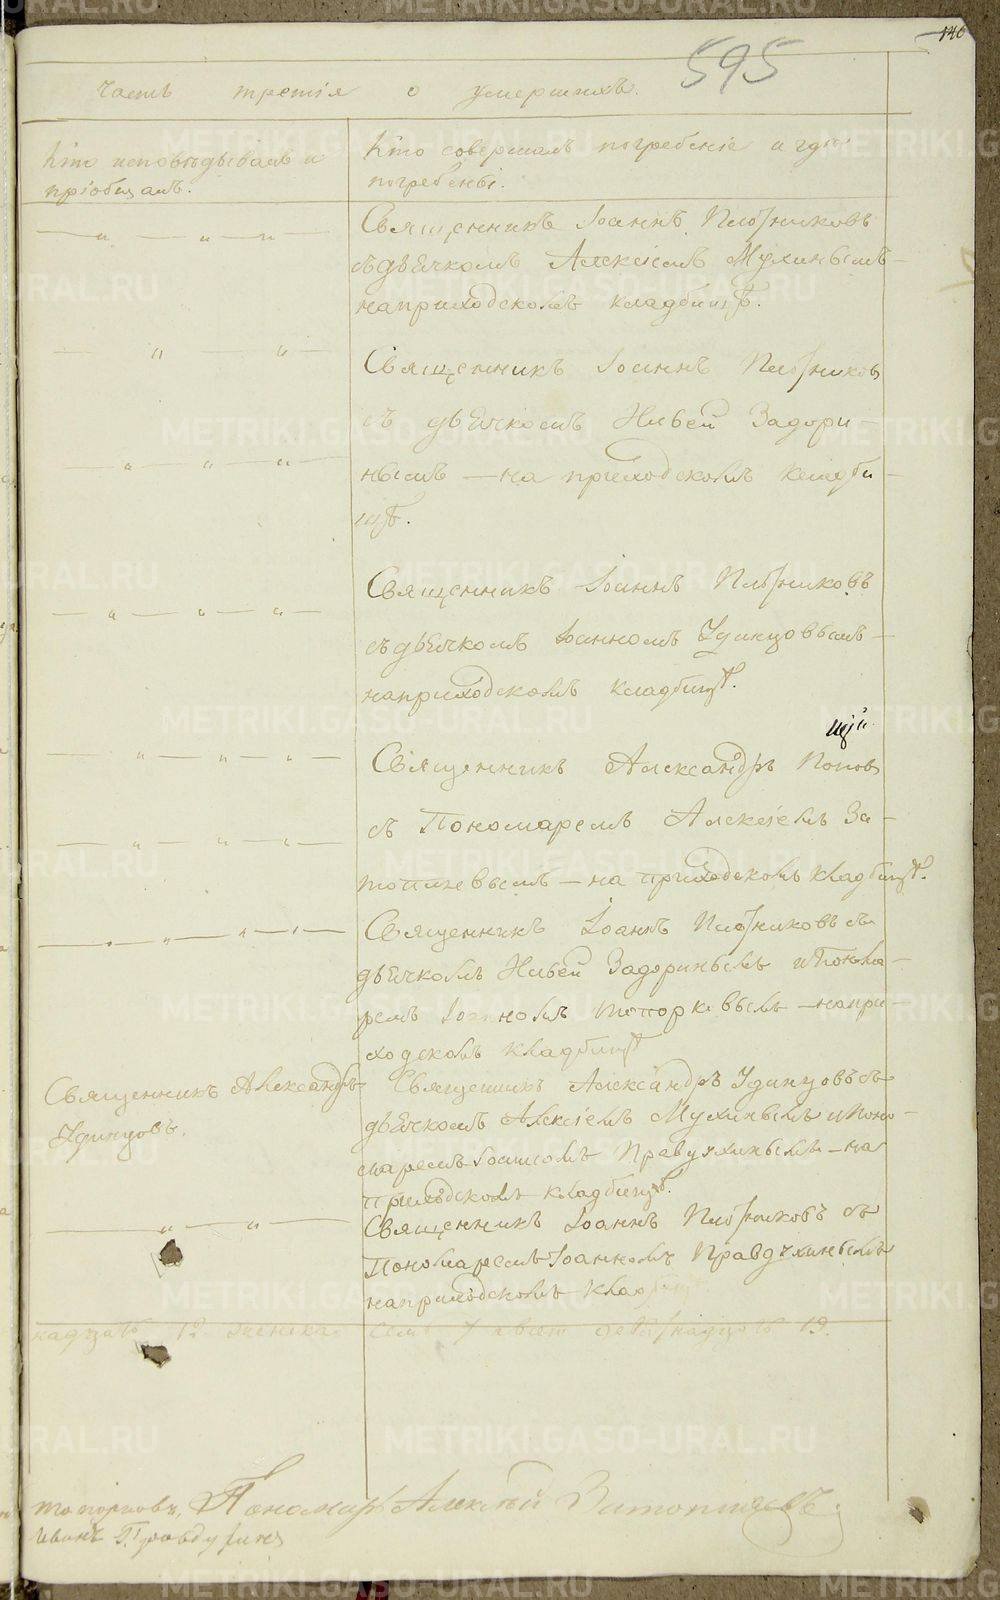 140
595
Часть третія о умершихъ.
Кто исповѣдывалъ и
пріобщалъ.
Кто совершалъ погребеніе и гдѣ
погребены.
Священникъ Іоаннъ Плотниковъ
съ дьячкомъ Алексіемъ Мухинымъ
на приходскомъ кладбищѣ.
Священникъ Іоаннъ Плотников
съ дьячкомъ Ильей Задори-
нымъ — на приходскомъ кладби-
щѣ.
Священникъ Іоаннъ Плотниковъ
съ дьячкомъ Іоанномъ Удинцовымъ
на приходскомъ кладбищѣ.
Священникъ Александръ Попов
съ Пономаремъ Алексіемъ За-
топляевымъ — на приходскомъ кладбищѣ.
Священникъ Іоаннъ Плотниковъ съ
дьячкомъ Ильей Задоринымъ и Понома-
ремъ Іоанномъ Топорковымъ — на при-
ходскомъ кладбищѣ
Священникъ Александръ
Удинцовъ.
Священникъ Александръ Удинцовъ съ
дьячкомъ Алексіемъ Мухинымъ и Поно-
маремъ Іоанномъ Правдухинымъ — на
приходскомъ кладбищѣ.
Священникъ Іоаннъ Плотниковъ съ
Пономаремъ Іоанномъ Правдухинымъ
на приходскомъ клад
надцать 12. женска
семь 7 всего девятнадцать 19.
Топорковъ, Пономарь Алексѣй Затопляевъ
Иванъ Правдухинъ
METRIKI.GASO-URAL.RU